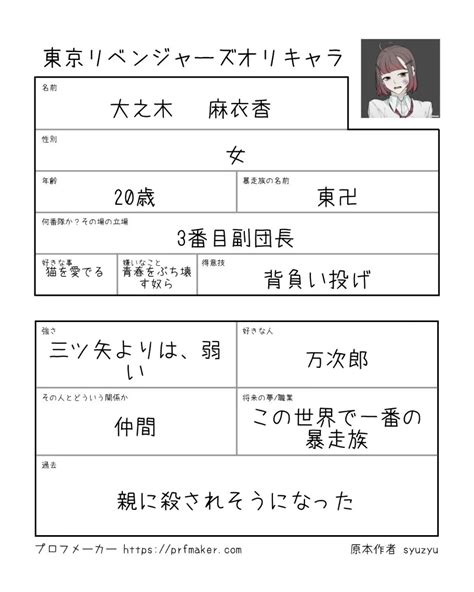 東京リベンジャーズオリキャラ
名前
大之木 麻衣香
性別
女
年齢
20歳
暴走族の名前
東卍
何番隊か?その場の立場
3番目副団長
好きな事
猫を愛でる
嫌いなこと
青春をぶち壊
す奴ら
得意技
背負い投げ
強さ
三ツ矢よりは、弱
い
好きな人
万次郎
その人とどういう関係か
仲間
将来の夢/職業
この世界で一番の
暴走族
過去
親に殺されそうになった
プロフメーカー https://prfmaker.com
原本作者 syuzyu